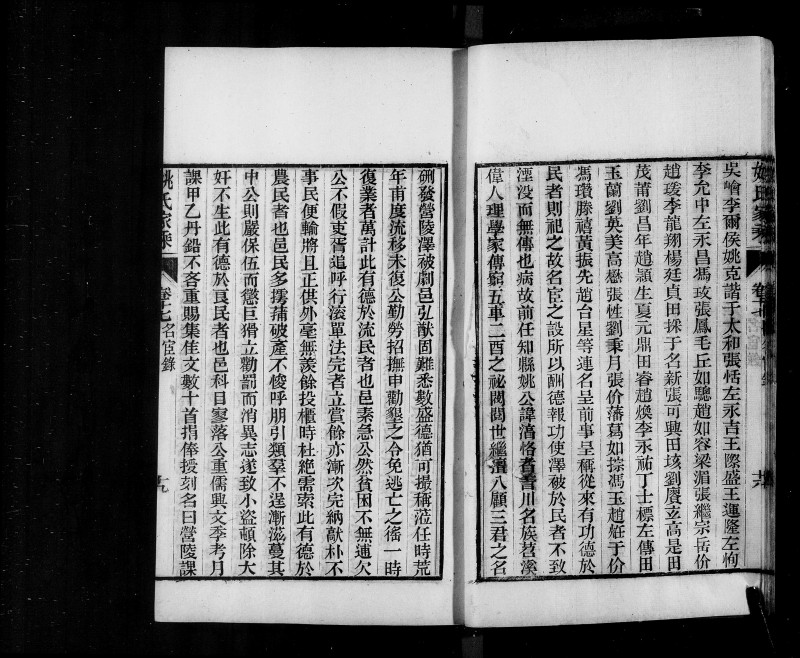 吳嶮李爾侯姚克諧于太和張恬左永吉王際盛王運隆左恂
李允中左永昌馮玫張鳳毛丘如驄趙如容梁淐張繼宗岳价
趙瑗李龍翔楊廷貞田採于名新張可興田琰劉賡玄高是田
茂莆劉昌年趙灝生夏元鼎田睿趙煥李永祐丁士標左傳田
玉蘭劉英美高懋張性劉秉月張价藩葛如採馮玉趙紝于价
馮瓚滕禧黃振先趙台星等連名呈前事呈稱從來有功德於
民者則祀之故名宦之設所以酬德報功使澤被於民者不致
湮没而無傳也病故前任知縣姚公諱湇恪者苕川名族苕溪
偉人理學家傳窮五車二酉之祕閥閱世繼濟八顧三君之名
姚氏家乘 卷十七
硎發營陵澤被劇邑弘猷固難悉數盛德猶可撮稱蒞任時荒
年甫度流移未復公勤勞招撫申勸墾之令免逃亡之徭一時
復業者萬計此有德於流民者也邑素急公然貧困不無逋欠
公不假吏胥追呼行滚單法完者立賞餘亦漸次完納敲朴不
事民便輸將且正供外毫無羨餘投櫃時杜絶需索此有德於
農民者也邑民多摴蒲破產不悛呼朋引類羣不逞漸滋蔓其
中公則嚴保伍而懲巨猾立勸罰而消異志遂致小盜頓除大
奸不生此有德於良民者也邑科目寥落公重儒興文季考月
課甲乙丹鉛不吝重賜集佳文數十首捐俸授刻名曰營陵課
姚氏家乘 卷十七 名宦錄 十九